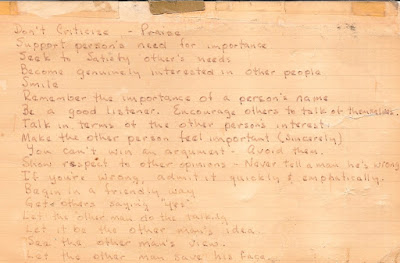 Don't Criticise - Praise
Support person's need for importance
Seek to Satisfy other's needs
Become genuinely interested in other people
Smile
Remember the importance of a person's name
Be a good listener. Encourage others to talk of themselves.
Talk in terms of the other persons interest.
Make the other person feel important (Sincerely)
You Can't win an argument - Avoid them.
Show respect to other opinions - Never tell a man he's wrong
If you're wrong, admit it quickly & emphatically.
Begin in a friendly way
Get others saying "yes"
Let the other man do the talking
Let it be the other man's idea.
See the other man's view.
Let the other man save his face.